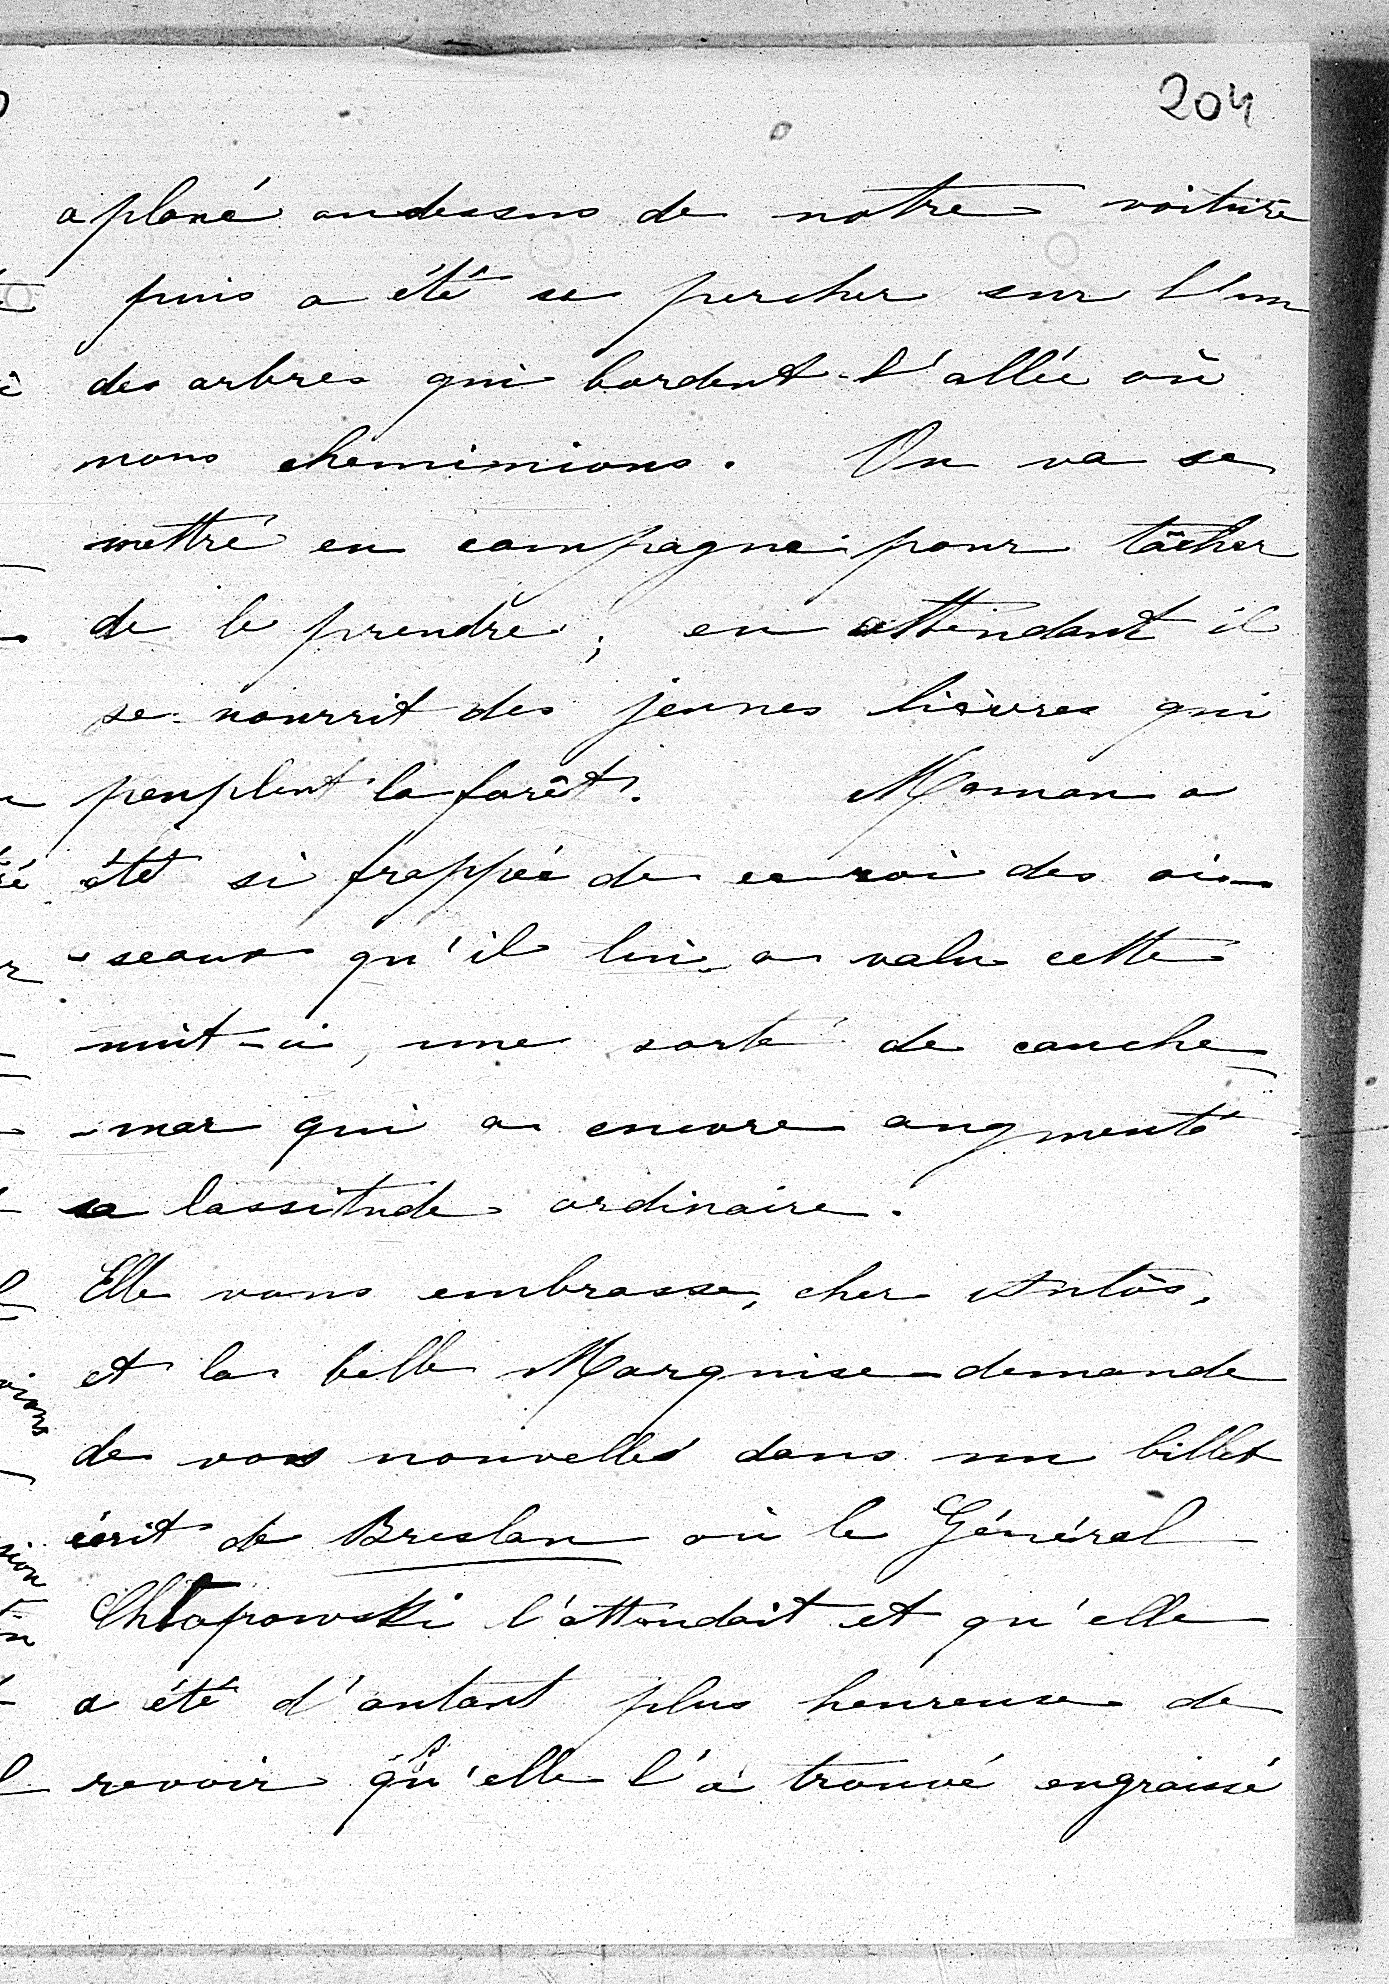 204
a plané audessus de notre voiture
puis a été se percher sur l'un
des arbres qui bordent l'allée où
nous cheminions. On va se
mettre en campagne pour tâcher
de le prendre; en attendant il
se nourrit des jeunes lièvres qui
peuplent la forêt. Maman a
été si frappée de ce roi des oi-
-seaux qu'il lui a valu cette
nuit-ci, une sorte de cauche-
-mar qui a encore augmenté
sa lassitude ordinaire.
Elle vous embrasse, cher Antôs,
et la belle Marquise demande
de vos nouvelles dans un billet
écrit de Breslau où le Général
Chłapowski l'attendait et qu'elle
a été d'autant plus heureuse de
revoir qu'elle l'a trouvé engraissé